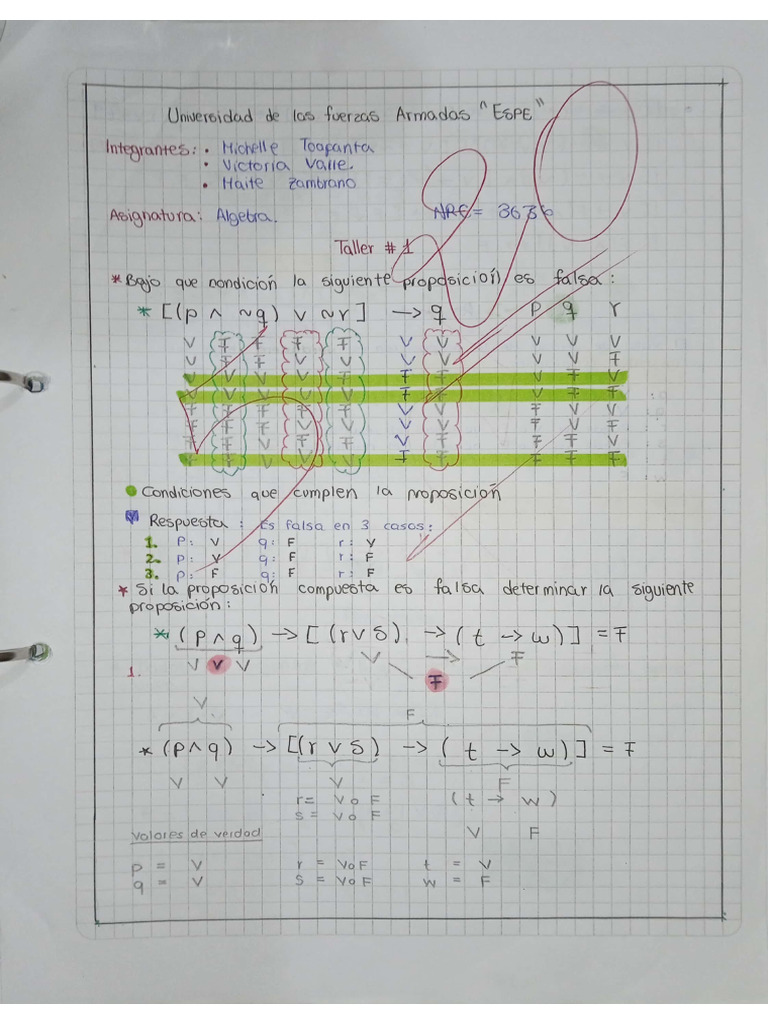 Universidad de las fuerzas Armadas "ESPE"
Integrantes: • Michelle Toapanta
• Victoria Valle.
• Haite Zambrano
Asignatura: Algebra. NRC = 3636
Taller # 1
* Bajo que condición la siguiente proposición es falsa:
* [(p ∧ ~q) ∨ ~r] → q p q r
V F F F F V V V V V
V F F V V V V V V F
V V V V F F F V F V
V V V V V F F V F F
F F F F F V V F V V
F F F V V V V F V F
F F V F F V F F F V
F F V V F F F F F
• Condiciones que cumplen la proposición
Respuesta: Es falsa en 3 casos:
1. P: V q: F r: V
2. P: V q: F r: F
3. P: F q: F r: F
* Si la proposición compuesta es falsa determinar la siguiente
proposición:
* (p ∧ q) → [(r ∨ s) → (t → w)] = F
1. V V V V → F
F
V F
* (p ∧ q) → [(r ∨ s) → (t → w)] = F
V V V F
r = V o F (t → w)
s = V o F V F
Valores de verdad
p = V r = V o F t = V
q = V s = V o F w = F